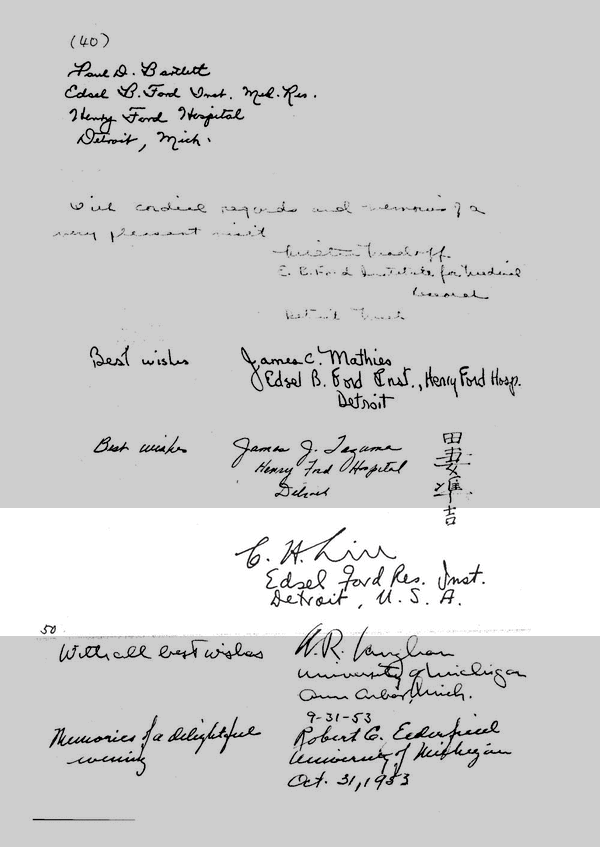 (40)
Paul D. Bartlett
Edsel B. Ford Inst. Med. Res.
Henry Ford Hospital
Detroit, Mich.
With cordial regards and memories of a
very pleasant visit
E. B. Ford Institute for Medical
Research
Detroit
Best wishes James C. Mathies
Edsel B. Ford Inst., Henry Ford Hosp.
Detroit
Best wishes James J. Tazuma
Henry Ford Hospital
Detroit
田妻準吉
C. H. Liu
Edsel Ford Res. Inst.
Detroit, U. S. A.
50
With all best wishes W. R. Vaughan
University of Michigan
Ann Arbor, Mich.
9-31-53
Memories of a delightful Robert C. Elderfield
evening University of Michigan
Oct. 31, 1953